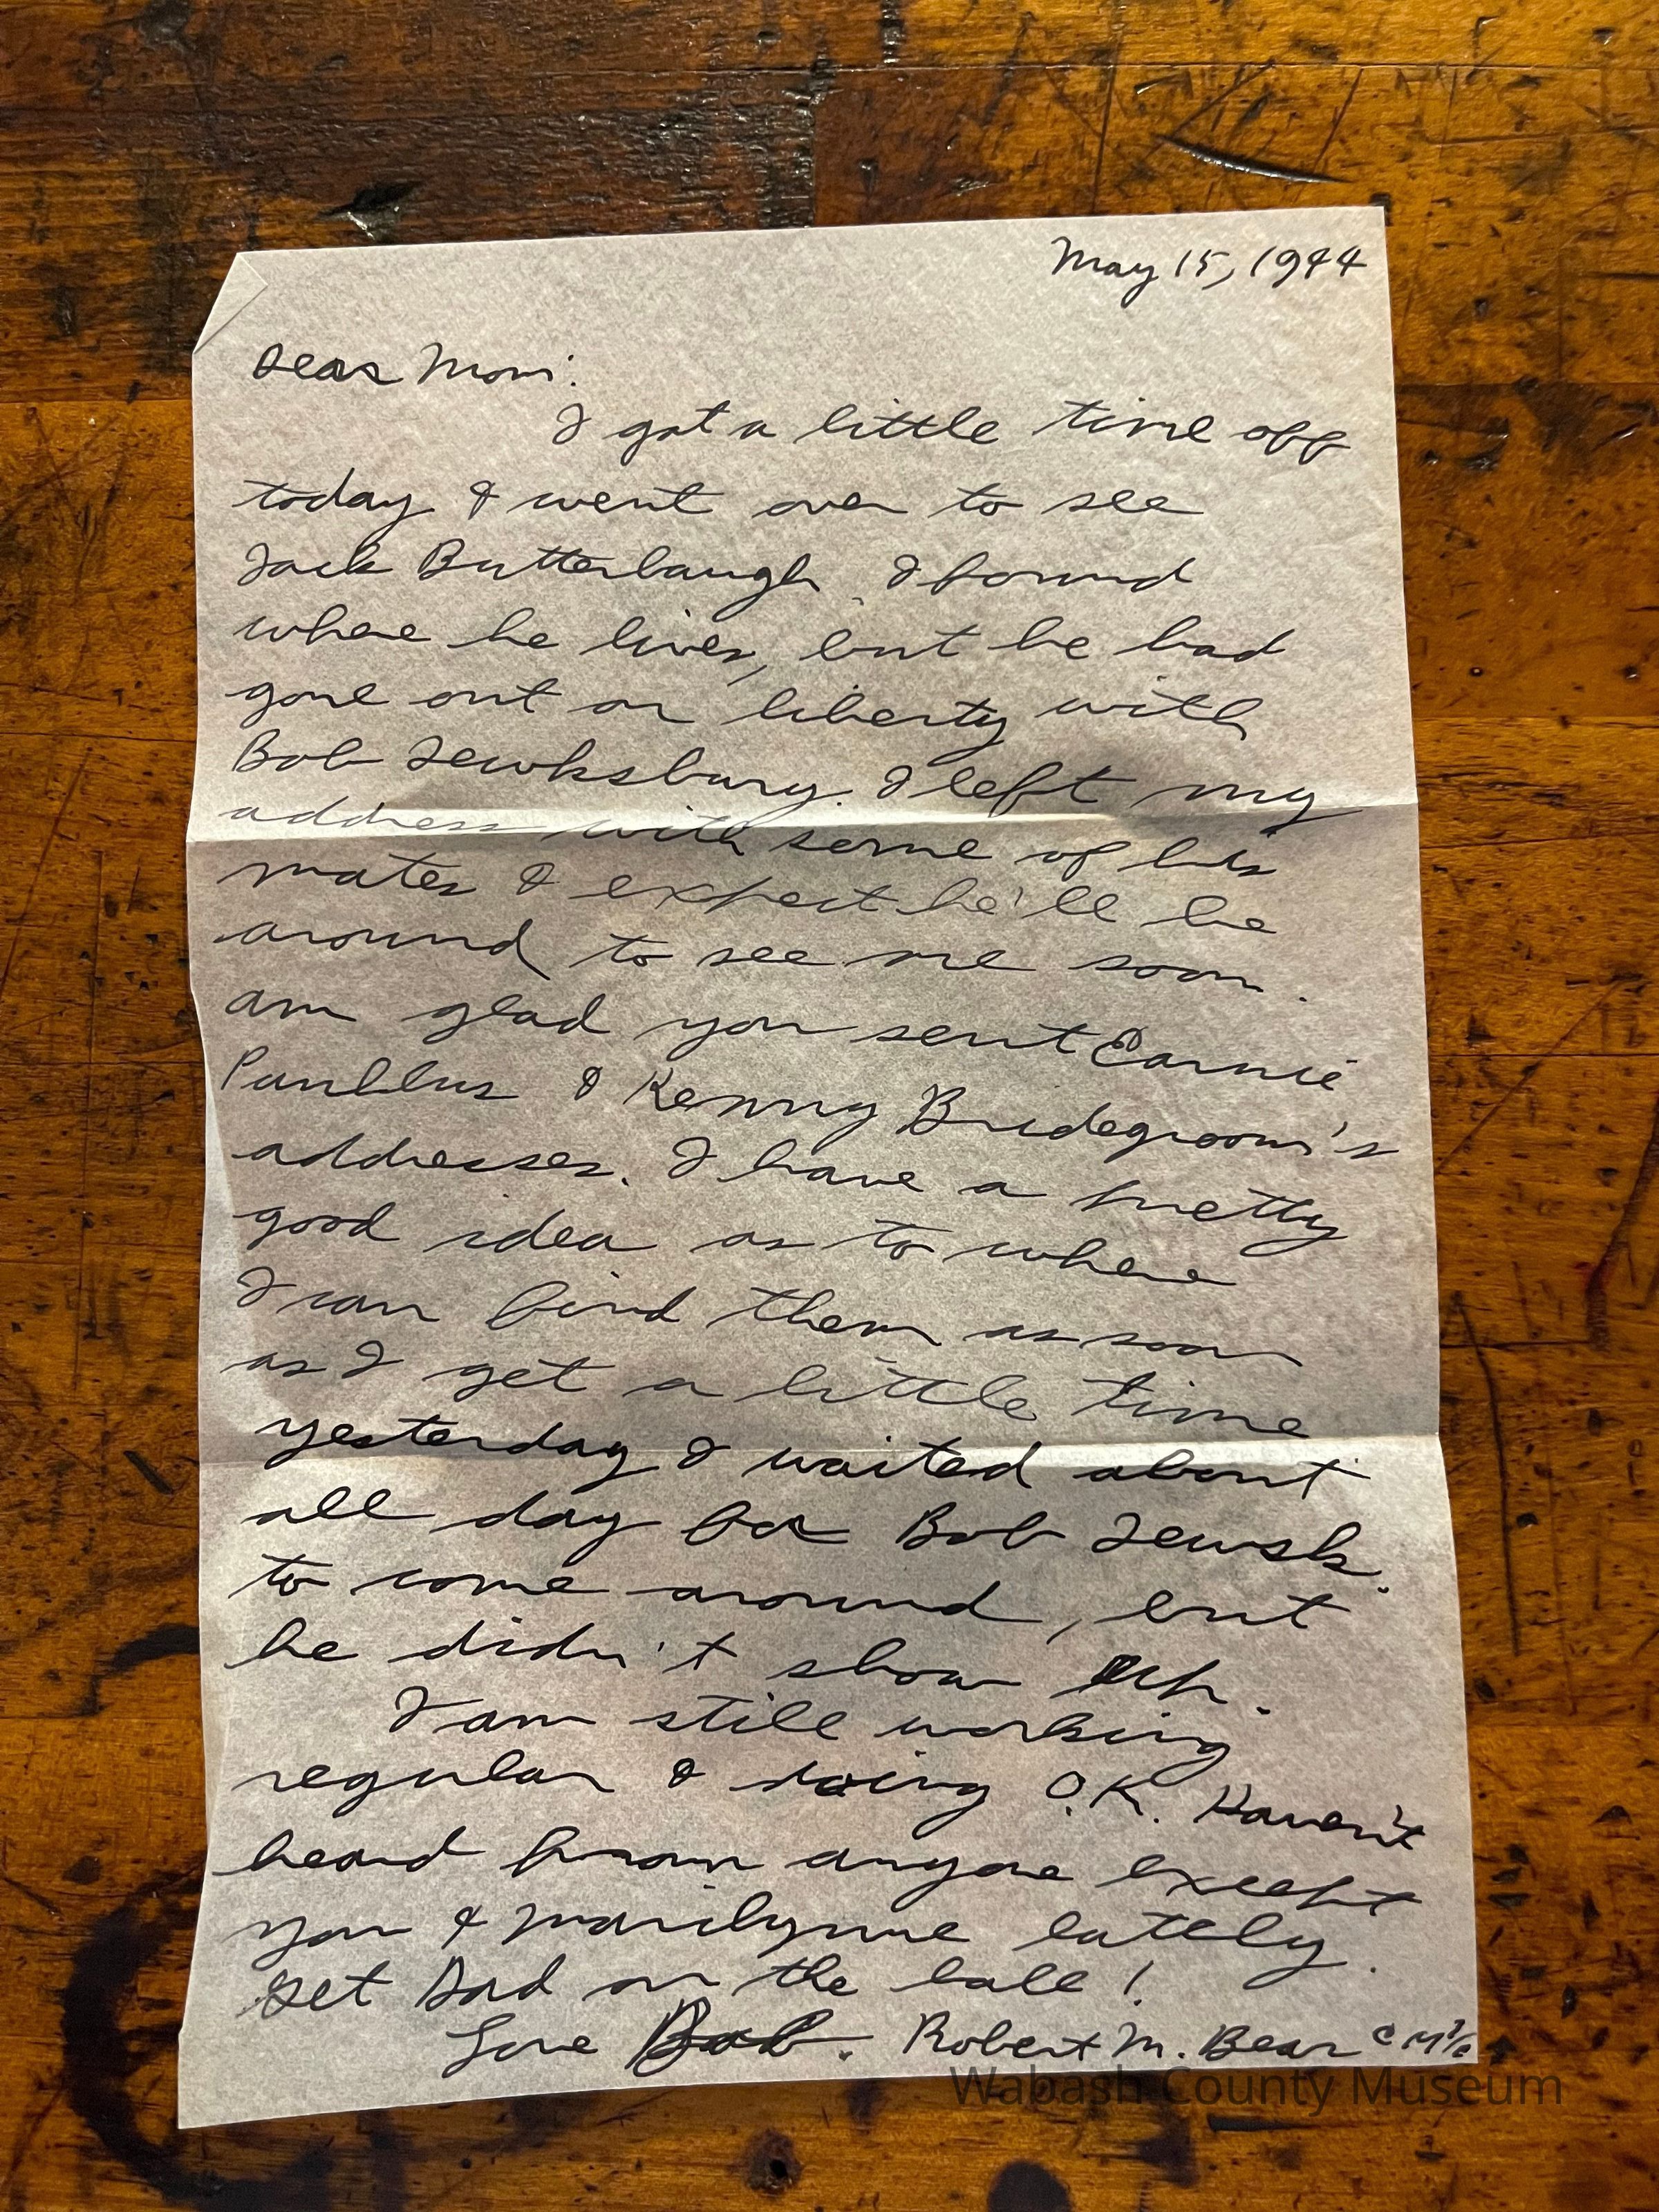 May 15, 1944
Dear Mom:
I got a little time off
today & went over to see
Jack Butterbaugh. I found
where he lives, but he had
gone out on liberty with
Bob Tewksbury. I left my
address with some of his
mates & expect he'll be
around to see me soon.
am glad you sent Earnie
& Kenny Bridegroom's
addresses. I have a pretty
good idea as to where
I can find them as soon
as I get a little time
yesterday I waited about
all day for Bob Tewsk.
to come around, but
he didn't show up.
I am still working
regular & doing O.K. Haven't
heard from anyone except
you & Marilynne lately.
Get Dad on the ball!
Love Bob. Robert M. Bear
Wabash County Museum